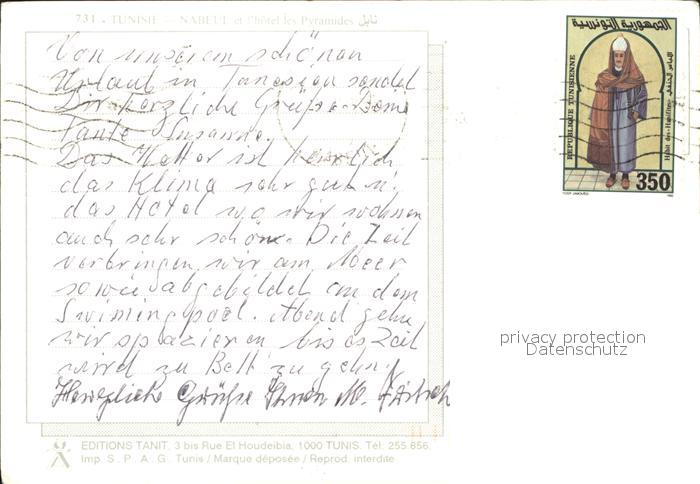 731 - TUNISIE — NABEUL et l'hôtel les Pyramides نابل
Von unserem schönen
Urlaub in Tunesien sendet
Dir herzliche Grüsse Deine
Tante Susanne.
Das Wetter ist herrlich
das Klima sehr gut u.
das Hotel wo wir wohnen
auch sehr schön. Die Zeit
verbringen wir am Meer
sowie abgebildet an dem
Swimingpool. Abend gehn
wir spazieren bis es Zeit
wird zu Bett zu gehn.
Herzliche Grüße
EDITIONS TANIT, 3 bis Rue El Houdeibia, 1000 TUNIS. Tél: 255.656.
Imp. S. P. A. G. Tunis / Marque déposée / Reprod. interdite
الجمهورية التونسية
REPUBLIQUE TUNISIENNE
350
privacy protection
Datenschutz